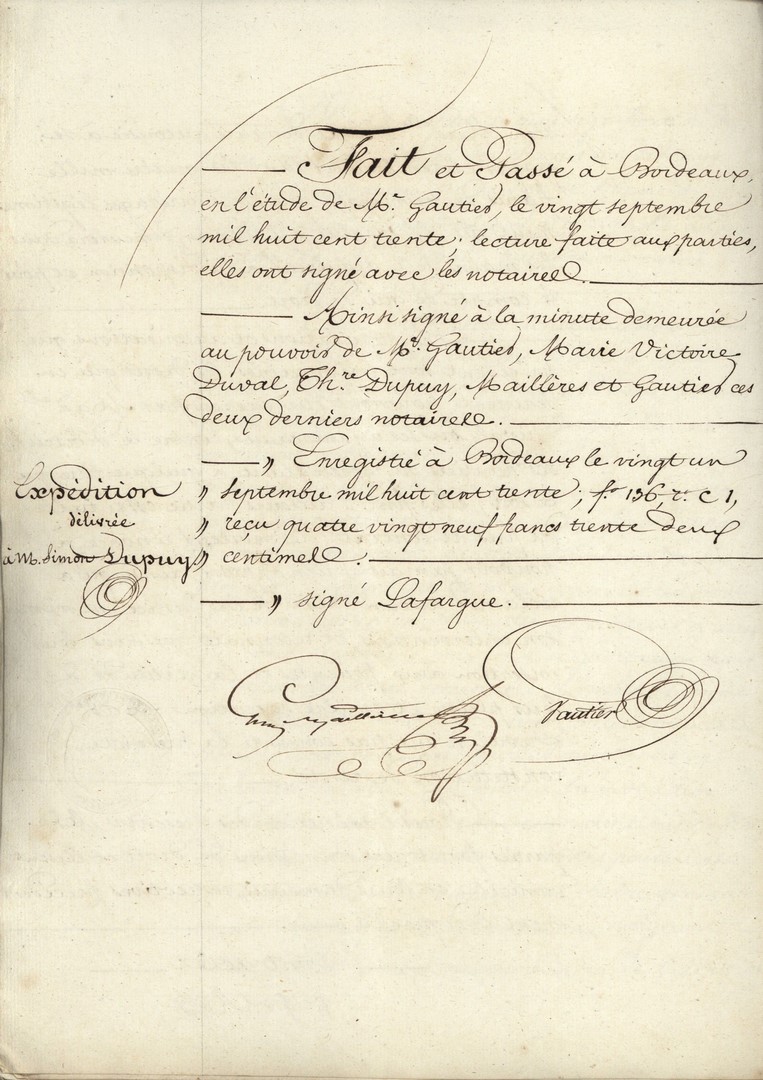 Fait et Passé à Bordeaux,
en l'étude de Me. Gautier, le vingt septembre
mil huit cent trente; lecture faite aux parties,
elles ont signé avec les notaires.
Ainsi signé à la minute demeurée
au pouvoir de Me. Gautier, Marie Victoire
Duval, Thre. Dupuy, Maillères et Gautier ces
deux derniers notaires.
" Enregistré à Bordeaux le vingt un
" septembre mil huit cent trente; fo. 136, ro. C 1,
" reçu quatre vingt neuf francs trente deux
" centimes.
" signé Lafargue.
Expédition
délivrée
à M. Simon Dupuy
Maillères
Gautier